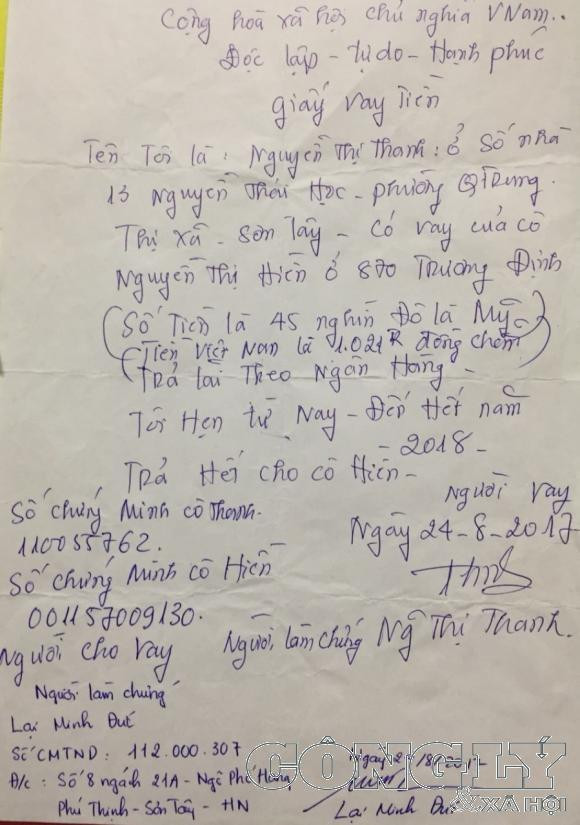 Cộng hoà xã hội chủ nghĩa VNam..
Độc lập - tự do - Hạnh phúc
giấy vay Tiền
Tên Tôi là : Nguyễn Thị Thanh : ở Số nhà
13 Nguyễn Thái Học - phường Q Trung.
Thị xã - Sơn Tây - có vay của cô
Nguyễn Thị Hiền ở 870 Trương Định
(Số Tiền là 45 nghìn Đô la Mỹ)
(Tiền Việt Nan là 1.021R đồng chẵm)
Trả lãi Theo Ngân Hàng -
Tôi Hẹn từ Nay - Đến Hết năm
- 2018 -
Trả Hết cho cô Hiền -
Người vay
Số chứng Minh cô Thanh.
Ngày 24-8-2017
110055762.
Số chứng Minh cô Hiền
001157009130.
Người cho vay
Người làm chứng
Ng Thị Thanh.
Người làm chứng
Lại Minh Đức
Số CMTND : 112.000.307
Đ/c : Số 8 ngách 21A - Ngõ Phố Hàng,
Phú Thịnh - Sơn Tây - HN
Ngày
Lại Minh Đức
CÔNG LÝ
& XÃ HỘI